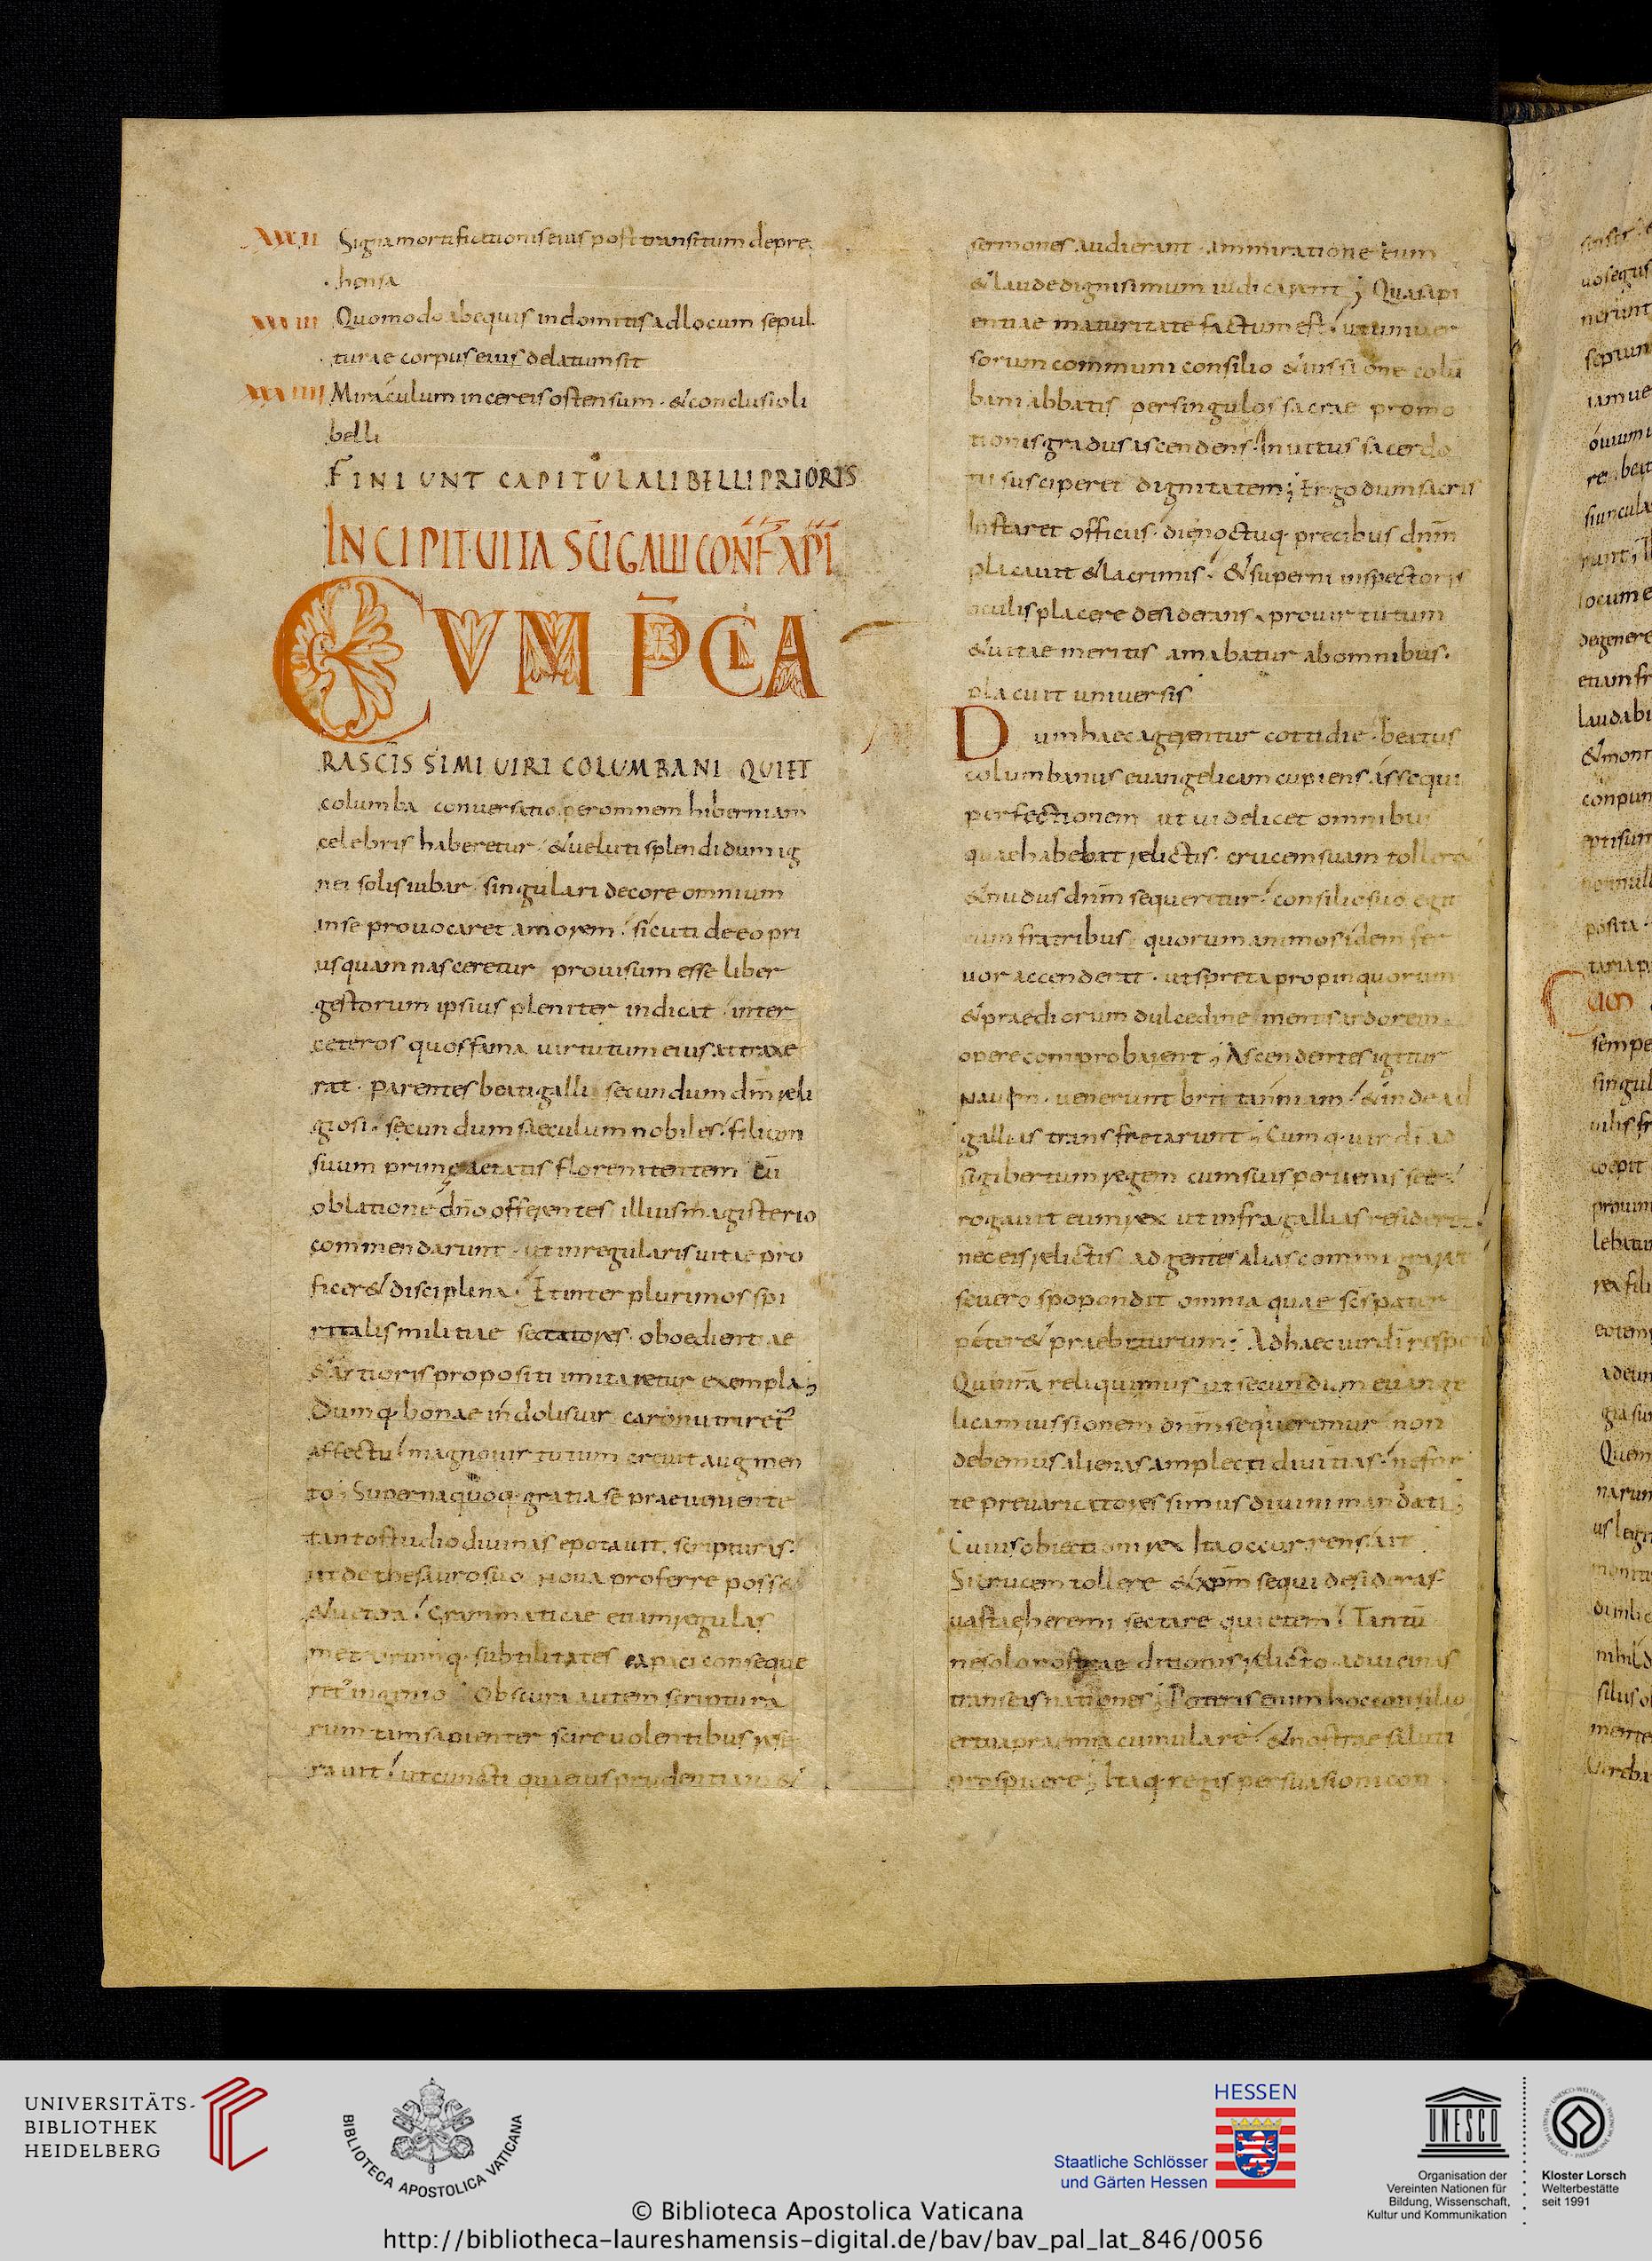 XXXII Signa mortificationis eius post transitum depre
hensa
XXXIII Quomodo ab equis indomitis ad locum sepul
turae corpus eius delatum sit
XXXIIII Miraculum in cereis ostensum · & conclusio li
belli
FINIUNT CAPITULA LIBELLI PRIORIS
INCIPIT UITA SCI GALLI CONF XPI
CUM P̄CLA
RA SCISSIMI UIRI COLUMBANI QUI ET
columba conuersatio per omnem hiberniam
celebris haberetur · & ueluti splendidum ig
nei solis iubar · singulari decore omnium
in se prouocaret amorem · sicuti de eo pri
us quam nasceretur prouisum esse liber
gestorum ipsius pleniter indicat · inter
ceteros quos fama uirtutum eius attraxe
rat · parentes beati galli secundum dm̄ reli
giosi · secundum saeculum nobiles · filium
suum primę aetatis flore nitentem cū
oblatione dn̄o offerentes illius magisterio
commendarunt · ut in regularis uitae pro
ficer& disciplina · Et inter plurimos spi
ritalis militiae sectatores · oboedientiae
& artioris propositi imitaretur exempla;
Dumq· bonae indolis uir caronutriret
affectu · magno uirtutum creuit augmen
to; Superna quoq· gratia se praeueniente
tanto studio diuinas epotauit scripturas ·
ut de thesauro suo noua proferre posse
& uetera · Grammaticae etiam regulas
metrorumq· subtilitates capaci conseque
ret ingenio · Obscura autem scriptura
rum tam sapienter scire uolentibus rese
rauit · ut cuncti qui eius prudentiam &
sermones audierant · ammiratione eum
& laude dignisimum iudicarent; Qua sapi
entiae maturitate factum est · ut uniuer
sorum communi consilio & iussione colū
bani abbatis per singulos sacrae promo
tionis gradus ascendens · Inuitus sacerdo
tii susciperet dignitatem; Ergo dum sacris
Instaret officiis · die noctuq· precibus dnm̄
placauit & lacrimis · & superni inspectoris
oculis placere desiderans · pro uirtutum
& uitae meritis amabatur ab omnibus ·
placuit uniuersis
Dum haec agerentur cottidie · beatus
columbanus euangelicam cupiens assequi
perfectionem ut uidelicet omnibus
quae habebat relictis · crucem suam tolleret
& nudus dnm̄ sequeretur · consilio suo egit
cum fratribus quorum animos idem fer
uor accenderat · ut spreta propinquorum
& praediorum dulcedine mentis ardorem
opere comprobarent; Ascendentes igitur
nauem · uenerunt brittanniam · & inde ad
gallias transfretarunt; Cumq· uir di ad
sigibertum regem cum suis peruenisset ·
rogauit eum rex ut infra gallias resideret ·
nec eis relictis ad gentes alias commigraret
se uero spopondit omnia quae se is pater
peter& praebiturum; Ad haec uir di respond
Qui nrā reliquimus ut secundum euange
licam iussionem dnm̄ sequeremur · non
debemus alienas amplecti diuitias · ne for
te preuaricatores simus diuini mandati;
Cuius obiectioni rex Ita occurrens ait
Si crucem tollere & xpm̄ sequi desideras
uastae heremi sectare quietem · Tantū
ne solo nostrae ditionis relicto ad uicinas
transeas nationes; Poteris enim hoc consilio
et tua praemia cumulare · & nostrae saluti
prospicere; Itaq· regis persuasioni con
UNIVERSITÄTS-
BIBLIOTHEK
HEIDELBERG
BIBLIOTECA APOSTOLICA VATICANA
HESSEN
Staatliche Schlösser
und Gärten Hessen
UNESCO
Organisation der
Vereinten Nationen für
Bildung, Wissenschaft,
Kultur und Kommunikation
Kloster Lorsch
Welterbestätte
seit 1991
© Biblioteca Apostolica Vaticana
http://bibliotheca-laureshamensis-digital.de/bav/bav_pal_lat_846/0056